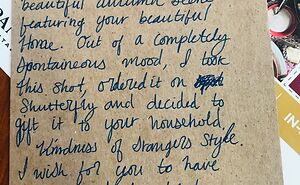 beautiful autumn scene
featuring your beautiful
Home. Out of a completely
spontaneous mood, I took
this shot, ordered it on
Shutterfly and decided to
gift it to your household.
Kindness of Strangers Style.
I wish for you to have
IN-